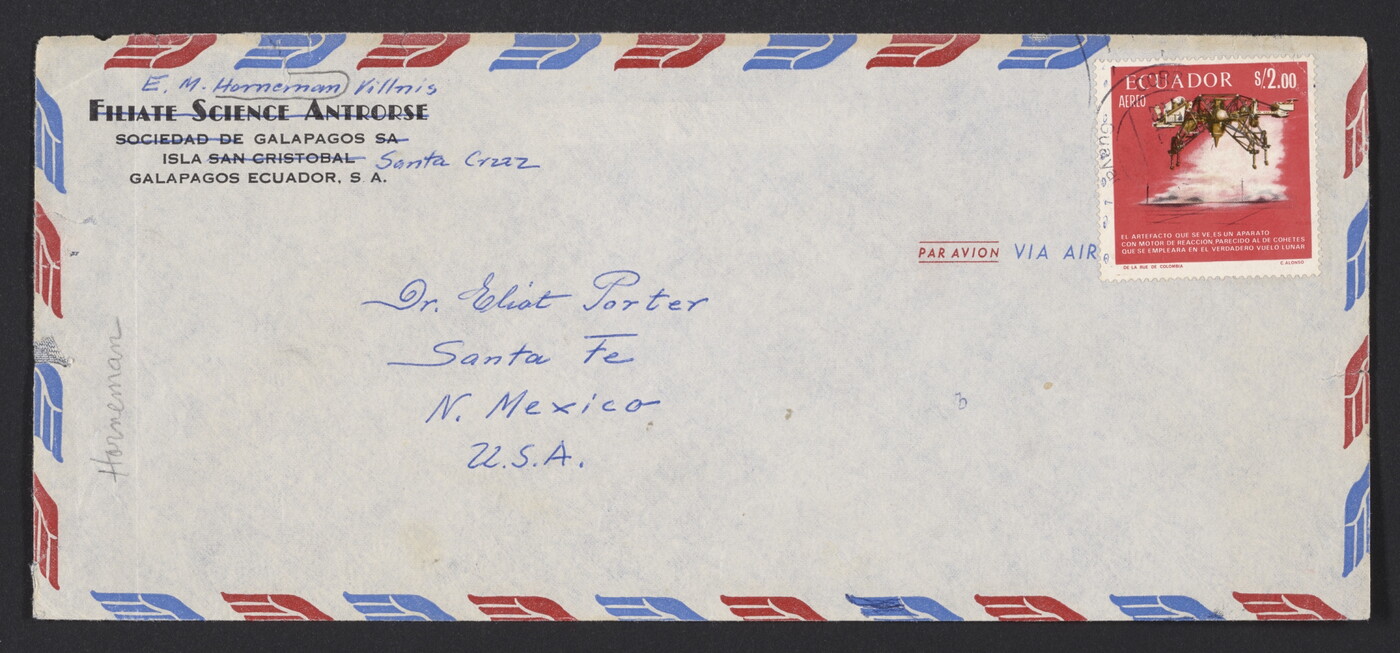 E. M. Horneman Villnis
FILIATE SCIENCE ANTRORSE
SOCIEDAD DE GALAPAGOS SA
ISLA SAN CRISTOBAL Santa Cruz
GALAPAGOS ECUADOR, S. A.
ECUADOR S/2.00
AEREO
EL ARTEFACTO QUE SE VE, ES UN APARATO
CON MOTOR DE REACCION, PARECIDO AL DE COHETES
QUE SE EMPLEARA EN EL VERDADERO VUELO LUNAR
DE LA RUE DE COLOMBIA E. ALONSO
PAR AVION VIA AIR
Dr. Eliot Porter
Santa Fe
N. Mexico
U.S.A.
Horneman